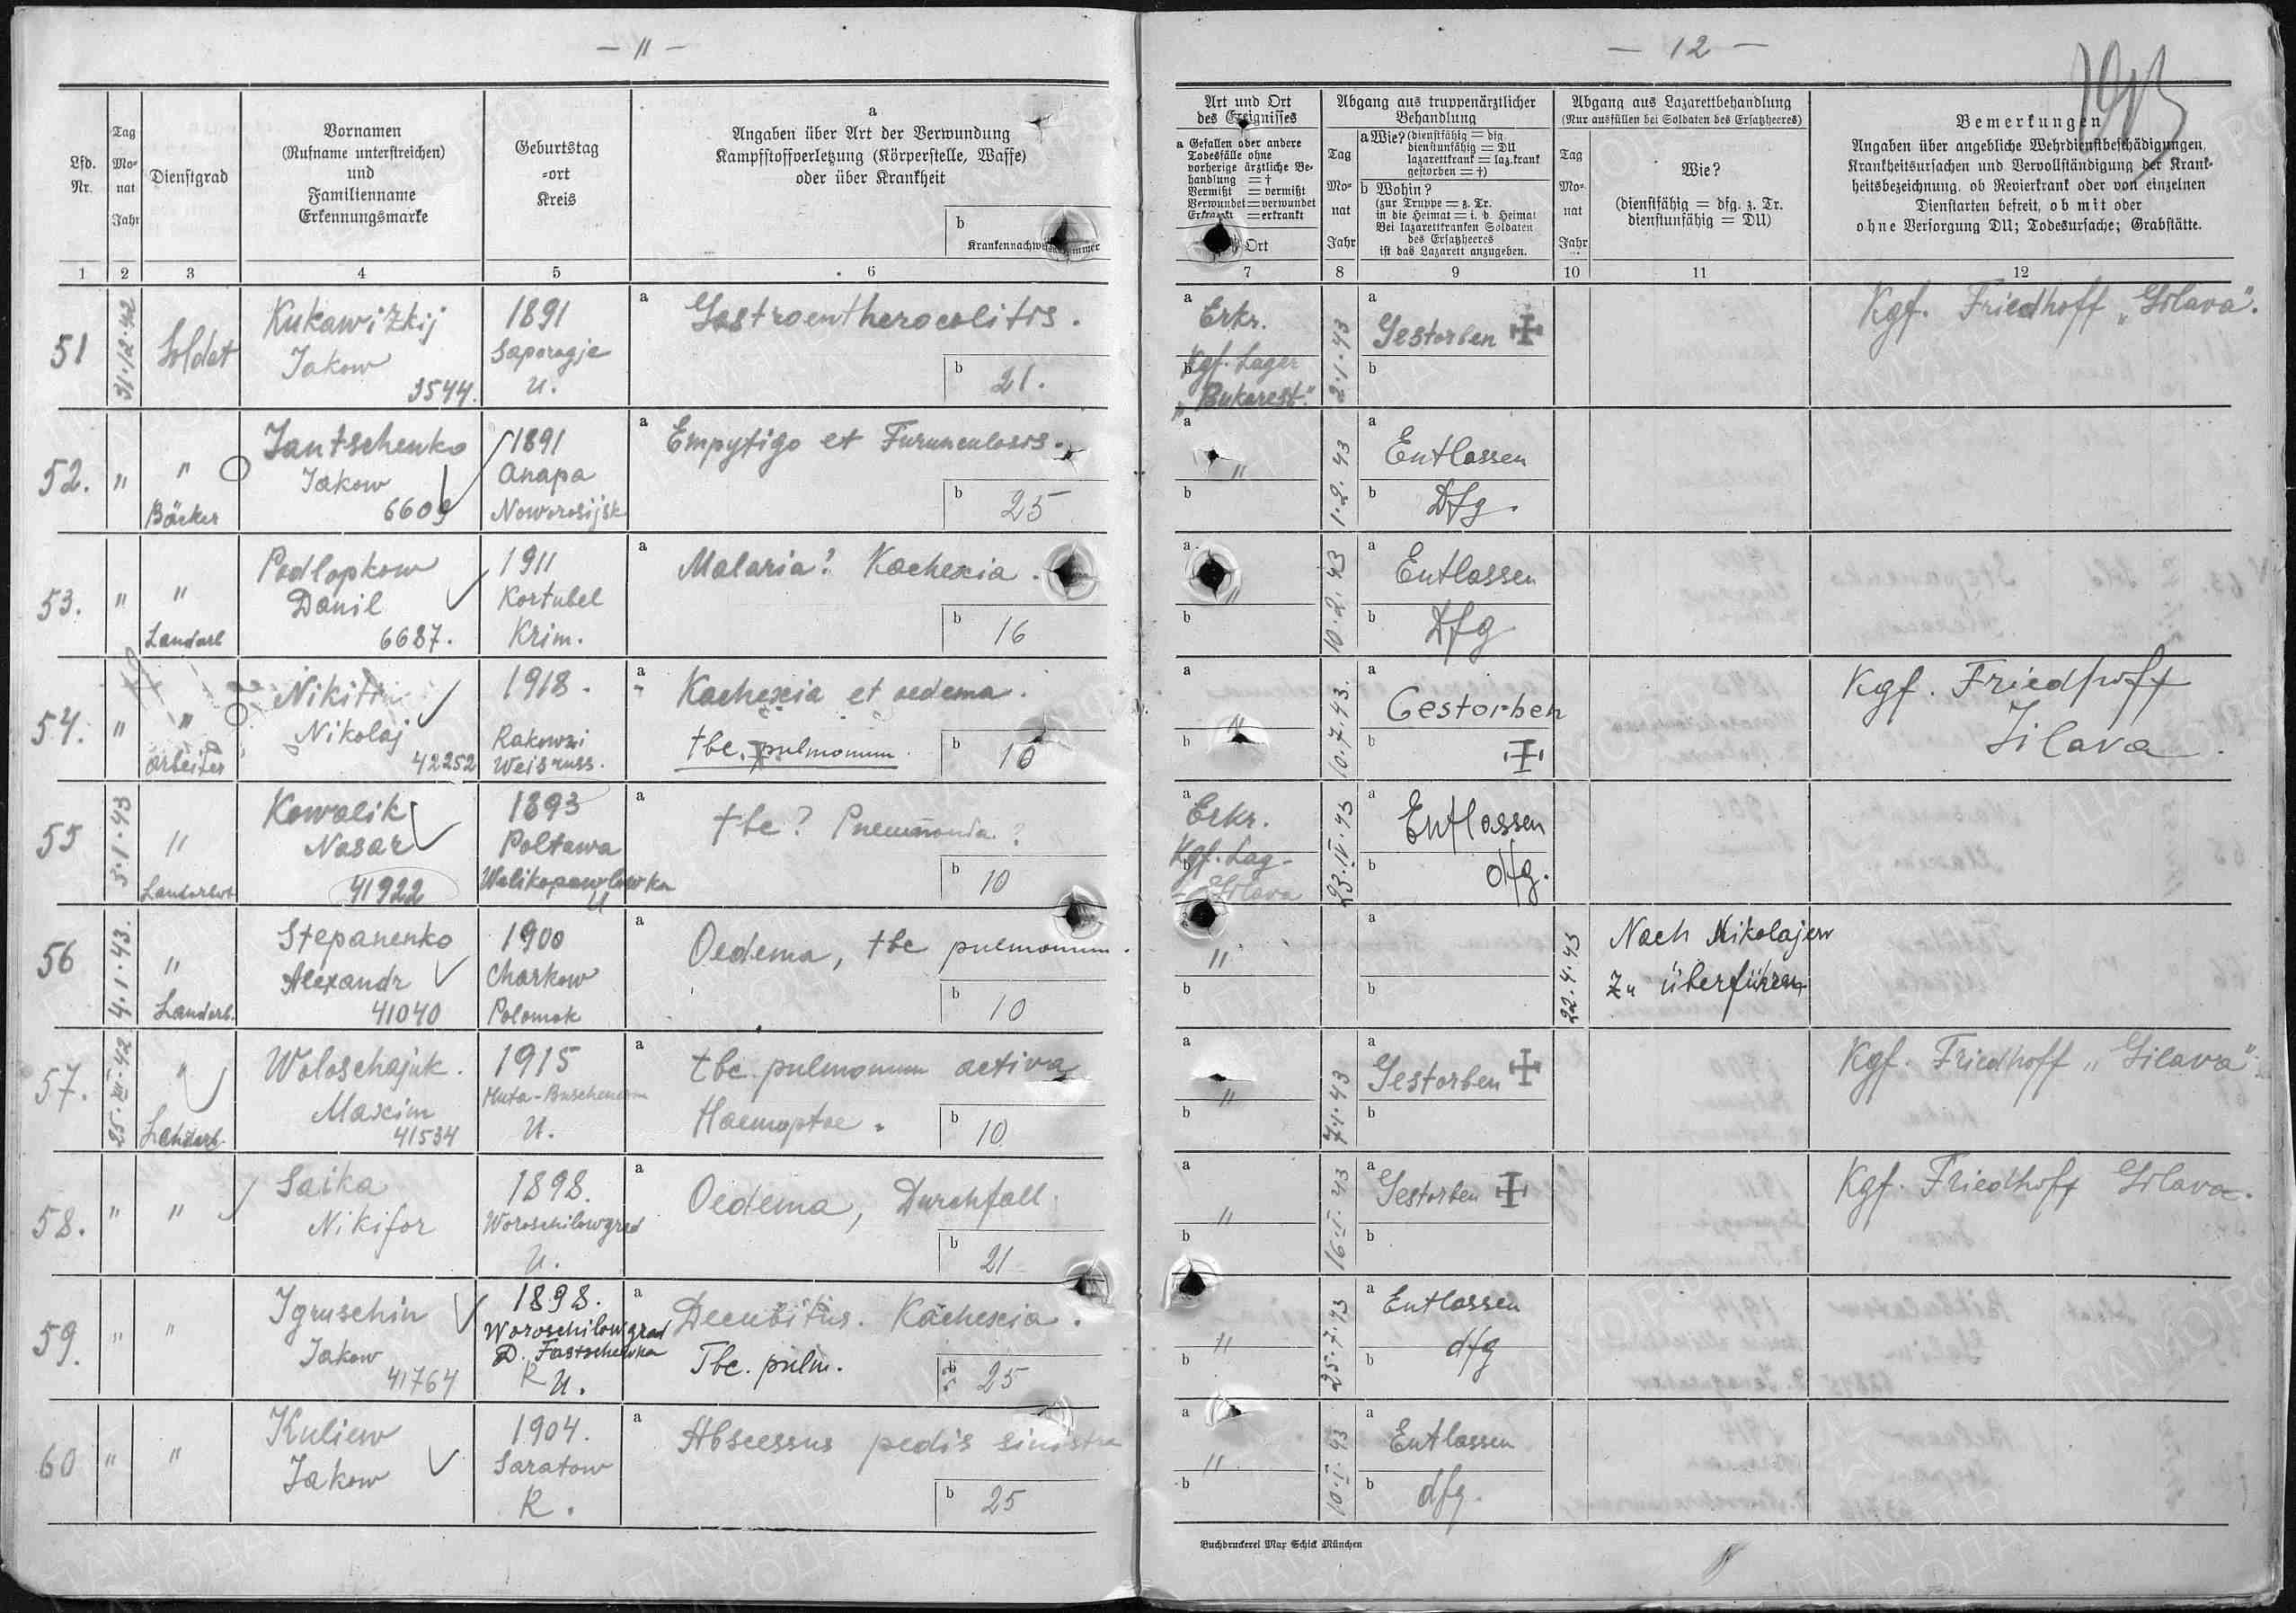 — 11 —
Lfd. Nr.
Tag Monat Jahr
Dienstgrad
Vornamen
(Rufname unterstreichen)
und
Familienname
Erkennungsmarke
Geburtstag
-ort
Kreis
a
Angaben über Art der Verwundung
Kampfstoffverletzung (Körperstelle, Waffe)
oder über Krankheit
b
1 2 3 4 5 6
51
31.12.42
Soldat
Kukawizkij
Jakow
3544.
1891
Saporogje
U.
a Gastroentherocolitis.
b 21.
52. " "
Bäcker
Jantschenko
Jakow
6609
1891
Anapa
Noworosijsk
a Empytigo et Furunculosis.
b 25
53. " "
Landarb
Podlopkow
Danil
6687.
1911
Kortubel
Krim.
a Malaria? Kachexia.
b 16
54. " "
Arbeiter
Nikitin
Nikolaj
42252
1918.
Rakowzi
Weisruss.
a Kachexia et oedema.
tbc. pulmonum
b 10
55
3.1.43
"
Kowalik
Nasar
41922
1893
Poltawa
Welikopawlowka
U
a tbc? Pneumonia?
b 10
56
4.1.43.
"
Landarb.
Stepanenko
Alexandr
41040
1900
Charkow
Polomak
a Oedema, tbc pulmonum.
b 10
57.
25.XII.42
"
Landarb.
Woloschajuk.
Maxim
41534
1915
U.
a tbc pulmonum activa
Haemoptoe.
b 10
58. " "
Saika
Nikifor
1898.
Woroschilowgrad
U.
a Oedema, Durchfall.
b 21
59. " "
Igruschin
Jakow
41764
1898.
Woroschilowgrad
D. Fastschewka
R U.
a Decubitus. Kachexia.
Tbc. pulm.
b 25
60 " "
Kuliew
Jakow
1904.
Saratow
R.
a Abscessus pedis sinistra
b 25
— 12 —
Art und Ort
des Ereignisses
a Gefallen oder andere
Todesfälle ohne
vorherige ärztliche Be-
handlung = †
Vermißt = vermißt
Verwundet = verwundet
Erkrankt = erkrankt
Ort
Abgang aus truppenärztlicher
Behandlung
Tag Monat Jahr
a Wie? (dienstfähig = dfg.
dienstunfähig = DU
lazarettkrank = laz.krank
gestorben = †)
b Wohin?
(zur Truppe = z. Tr.
in die Heimat = i. d. Heimat
Bei lazarettkranken Soldaten
des Ersatzheeres
ist das Lazarett anzugeben.
Abgang aus Lazarettbehandlung
(Nur ausfüllen bei Soldaten des Ersatzheeres)
Tag Monat Jahr
Wie?
(dienstfähig = dfg. z. Tr.
dienstunfähig = DU)
Bemerkungen
Angaben über angebliche Wehrdienstbeschädigungen,
Krankheitsursachen und Vervollständigung der Krank-
heitsbezeichnung, ob Revierkrank oder von einzelnen
Dienstarten befreit, ob mit oder
ohne Versorgung DU; Todesursache; Grabstätte.
7 8 9 10 11 12
a Erkr.
b Kgf. Lager
"Bukarest."
2.1.43
a Gestorben
b
Kgf. Friedhoff „Gilava“.
a "
b
1.2.43
a Entlassen
b Dfg.
a "
b
10.2.43
a Entlassen
b Dfg
a "
b
10.7.43.
a Gestorben
b
Kgf. Friedhoff
Jilava.
a Erkr.
b Kgf. Lag-
Gilava
23.IV.43
a Entlassen
b dfg.
"
b
a
b
22.4.43
Nach Nikolajew
Zu überfüren
a "
b
7.1.43
a Gestorben
b
Kgf. Friedhoff „Gilava“.
a "
b
16.I.43
a Gestorben
b
Kgf. Friedhoff Gilava.
"
b
25.7.43
a Entlassen
b dfg
a "
b
10.I.43
a Entlassen
b dfg.
Buchdruckerei Max Schick München